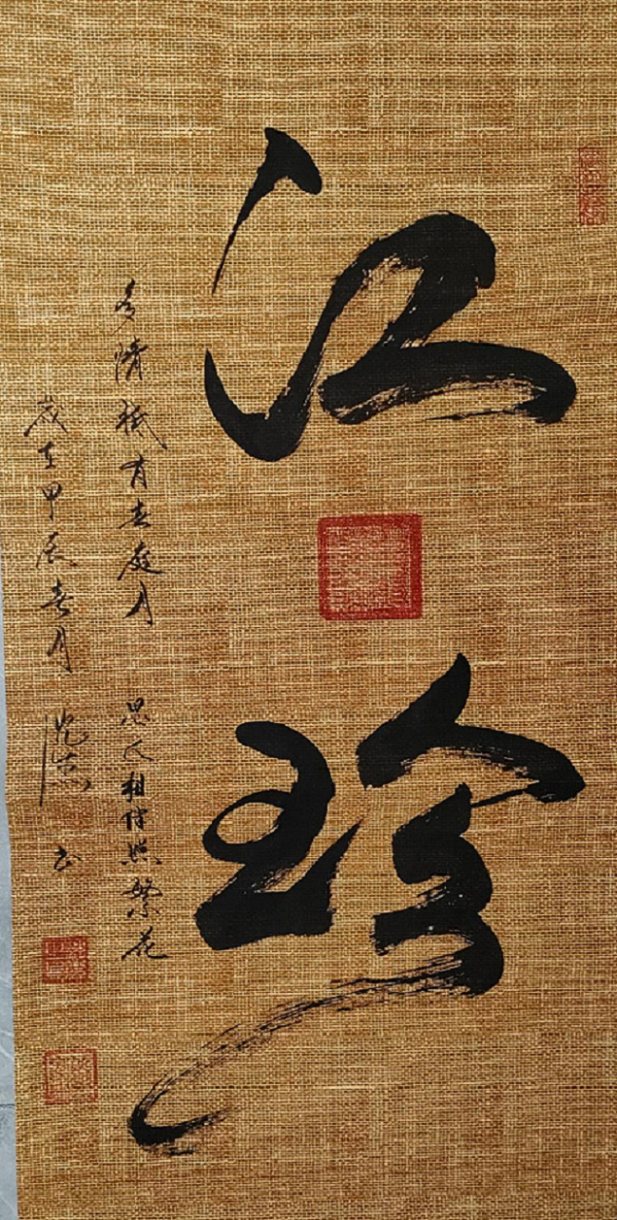 江珍
多情祇有春庭月 思人相伴照繁花
岁在甲辰春月 沈志 书